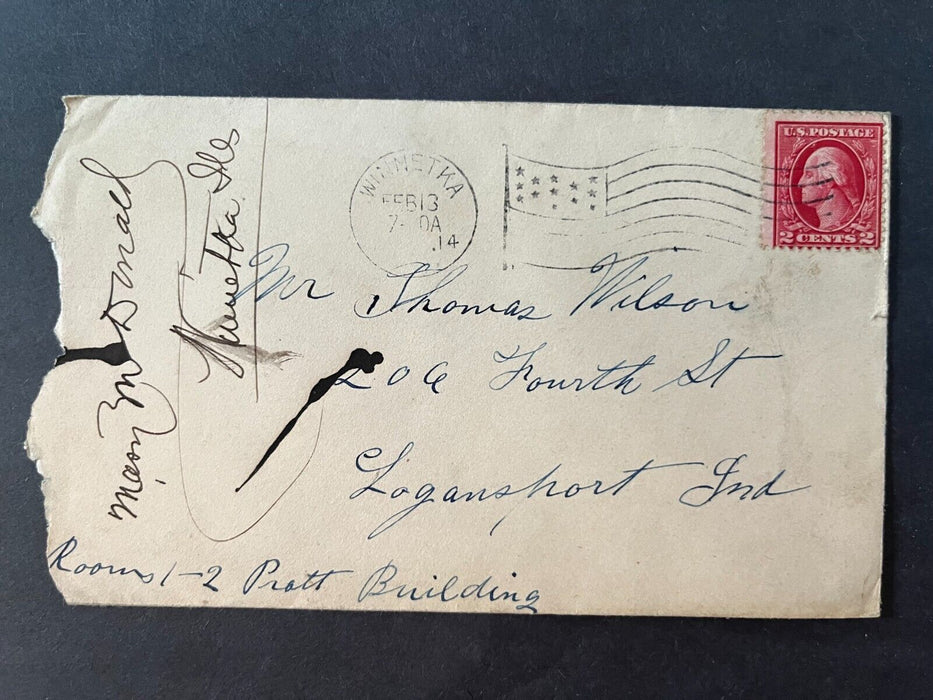 Mason McDonald
Winnetka Ills
WINNETKA
FEB 13
7- 0A
.14
U.S. POSTAGE
2 CENTS 2
Mr Thomas Wilson
206 Fourth St
Logansport Ind
Rooms 1-2 Pratt Building